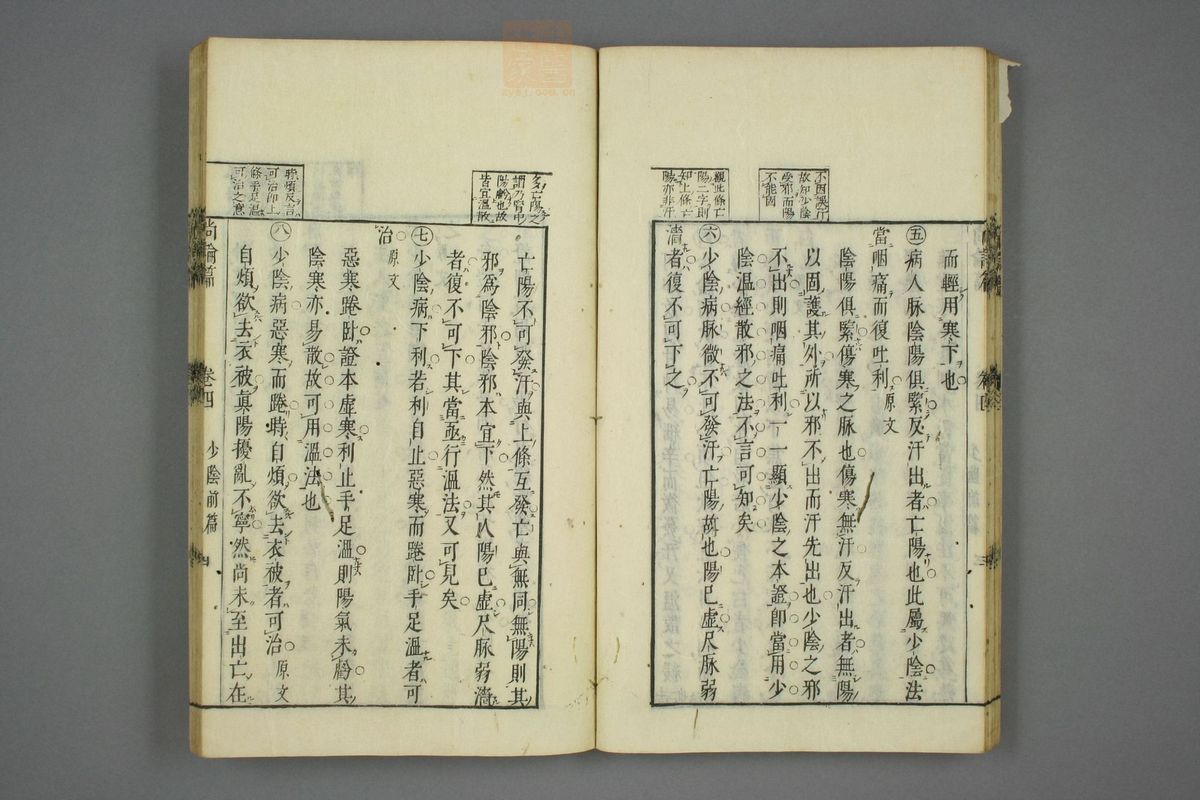 不因誤汗
故知少陰
受邪而陽
不能固
觀此條亡
陽二字則
知上條亡
陽亦非汗
而輕用寒下也
㊄病人脉陰陽俱緊反汗出者亡陽也此屬少陰法
當咽痛而復吐利 原文
陰陽俱緊傷寒之脉也傷寒無汗反汗出者無陽
以固護其外所以邪不出而汗先出也少陰之邪
不出則咽痛吐利一一顯少陰之本證卽當用少
陰温經散邪之法不言可知矣
㊅少陰病脉微不可發汗亡陽故也陽已虛尺脉弱
濇者復不可下之
陽虧也故
皆宜溫散
亡陽不可發汗與上條互發亡與無同無陽則其
邪爲陰邪陰邪本宜下然其人陽已虛尺脉弱濇
者復不可下其當亟行溫法又可見矣
㊆少陰病下利若利自止惡寒而踡臥手足溫者可
治 原文
惡寒踡臥證本虛寒利止手足溫則陽氣未虧其
陰寒亦易散故可用溫法也
時煩反言
可治卽上
條手足溫
可治之意
㊇少陰病惡寒而踡時自煩欲去衣被者可治 原文
自煩欲去衣被眞陽擾亂不寧然尚未至出亡在
尚論篇 卷四 少陰前篇 四